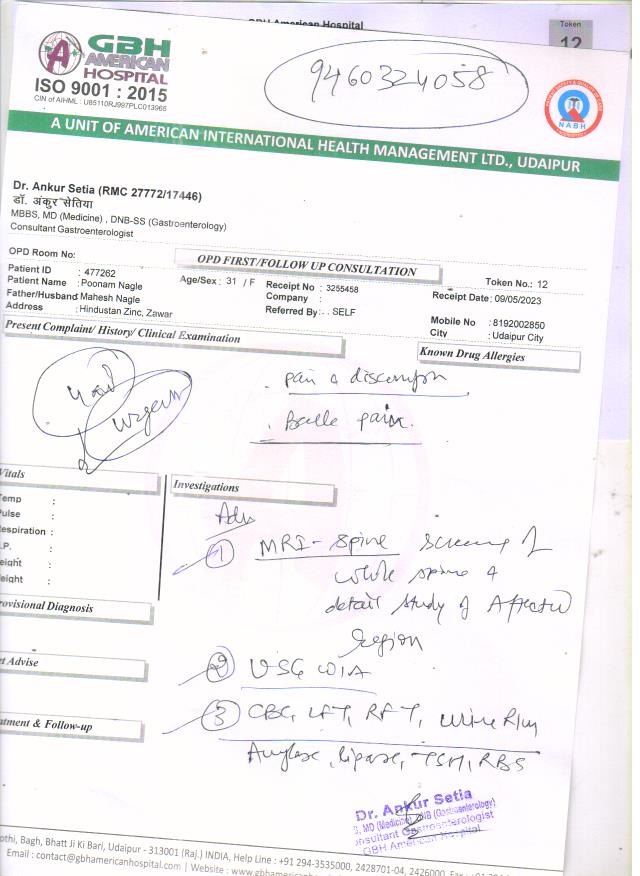 GBH American Hospital
Token
12
GBH
AMERICAN
HOSPITAL
ISO 9001 : 2015
CIN of AIHML : U85110RJ997PLC013965
9460324058
NABH
A UNIT OF AMERICAN INTERNATIONAL HEALTH MANAGEMENT LTD., UDAIPUR
Dr. Ankur Setia (RMC 27772/17446)
डॉ. अंकुर सेतिया
MBBS, MD (Medicine) , DNB-SS (Gastroenterology)
Consultant Gastroenterologist
OPD Room No:
OPD FIRST/FOLLOW UP CONSULTATION
Token No.: 12
Patient ID : 477262
Patient Name : Poonam Nagle
Age/Sex : 31 / F
Receipt No : 3255458
Receipt Date: 09/05/2023
Father/Husband: Mahesh Nagle
Company :
Address : Hindustan Zinc, Zawar
Referred By: . . SELF
Mobile No : 8192002850
City : Udaipur City
Present Complaint/ History/ Clinical Examination
Known Drug Allergies
. pain & discomfort
urgent
. pain.
Vitals
Investigations
Temp :
Pulse :
Respiration :
.P. :
eight :
eight :
Adv
1 MRI - Spine Screening of
whole spine &
detail study of Affected
region
rovisional Diagnosis
2 USG W/A
et Advise
3 CBC, LFT, RFT, urine R/m
atment & Follow-up
Amylase, lipase, TSH, RBS
Dr. Ankur Setia
S, MD (Medicine), DNB (Gastroenterology)
onsultant Gastroenterologist
GBH American Hospital
othi, Bagh, Bhatt Ji Ki Bari, Udaipur - 313001 (Raj.) INDIA, Help Line : +91 294-3535000, 2428701-04, 2426000, Fax : +91 294
Email : contact@gbhamericanhospital.com | Website : www.gbhamericanhosp